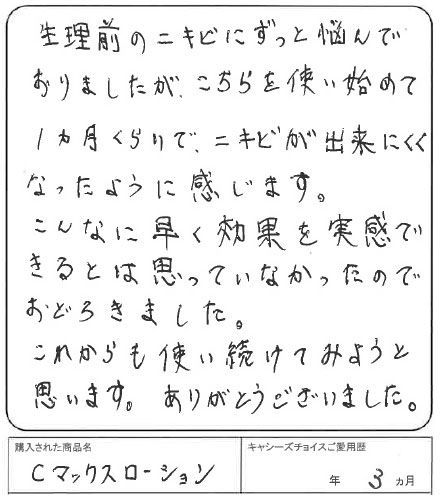 生理前のニキビにずっと悩んで
おりましたが、こちらを使い始めて
1ヵ月くらいで、ニキビが出来にくく
なったように感じます。
こんなに早く効果を実感で
きるとは思っていなかったので
おどろきました。
これからも使い続けてみようと
思います。ありがとうございました。
購入された商品名
Cマックスローション
キャシーズチョイスご愛用歴
年 3 ヵ月